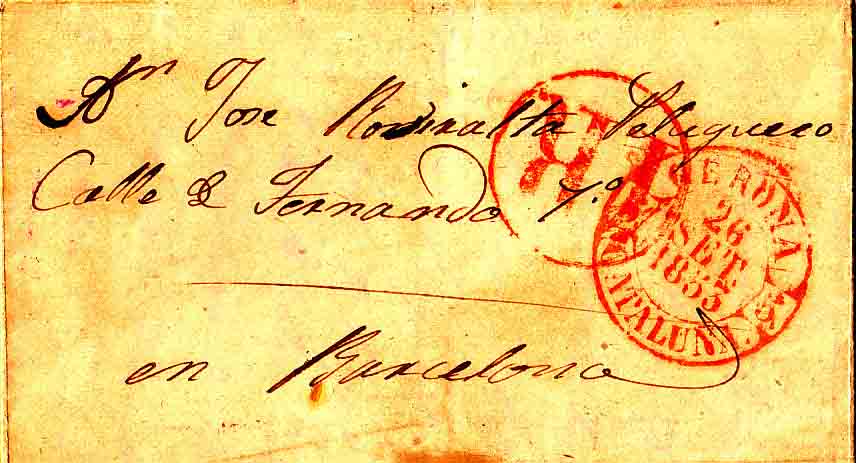 A Dn Jose Romiralta Peluquero
Calle de Fernando 7.º
en Barcelona
GERONA
26
SET
1853
CATALUÑA